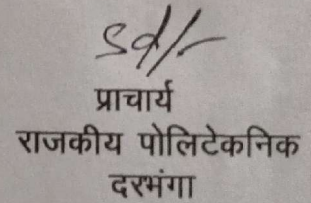 Sd/-
प्राचार्य
राजकीय पोलिटेकनिक
दरभंगा